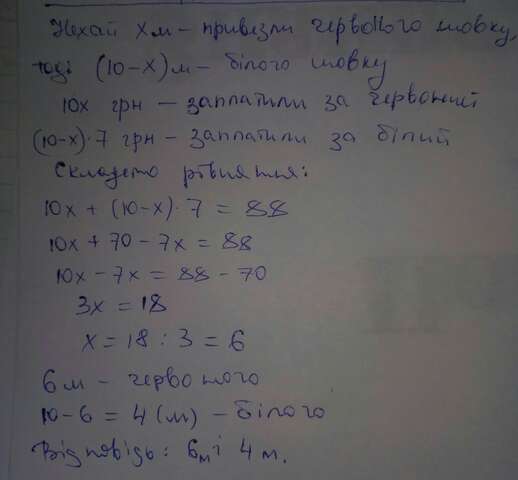 Нехай х м - привезли червоного шовку,
тоді (10-х) м - білого шовку
10х грн - заплатили за червоний
(10-х)·7 грн - заплатили за білий
Складемо рівняння:
10х + (10-х)·7 = 88
10х + 70 - 7х = 88
10х - 7х = 88 - 70
3х = 18
х = 18 : 3 = 6
6 м - червоного
10 - 6 = 4 (м) - білого
Відповідь: 6 м і 4 м.